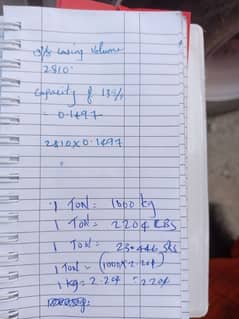 o/s casing volume
2810'
Capacity of 13 3/8
= 0.1497
2810 X 0.1497
1 TON = 1000 kg
1 TON = 2204 LBS
1 TON = 23.446 sks
1 TON = (1000 X 2.204)
1 kg = 2.204 = 2204